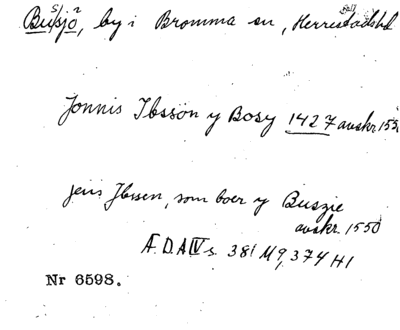 Bussjö, by i Bromma sn, Herrestadshd
Jonnis Ibsson y Bosy 1427 avskr. 1550
Jens Ibssen, som boer y Buszie
avskr. 1550
Æ.D.A IV s. 381 M9, 374 H1
Nr 6598.